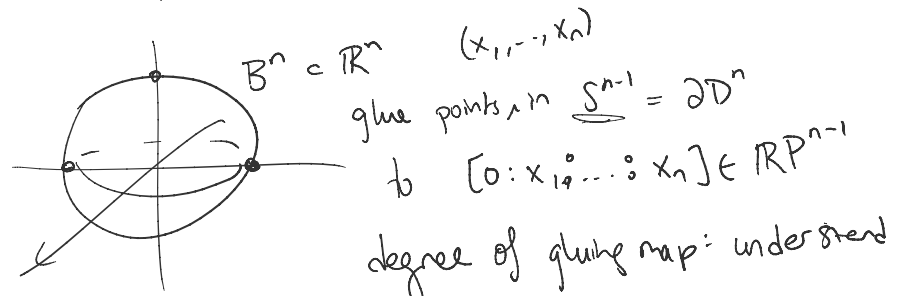 Bⁿ ⊂ ℝⁿ (x₁,..,xₙ)
glue points, in Sⁿ⁻¹ = ∂Dⁿ
to [0:x₁:...:xₙ] ∈ ℝPⁿ⁻¹
degree of gluing map: understand